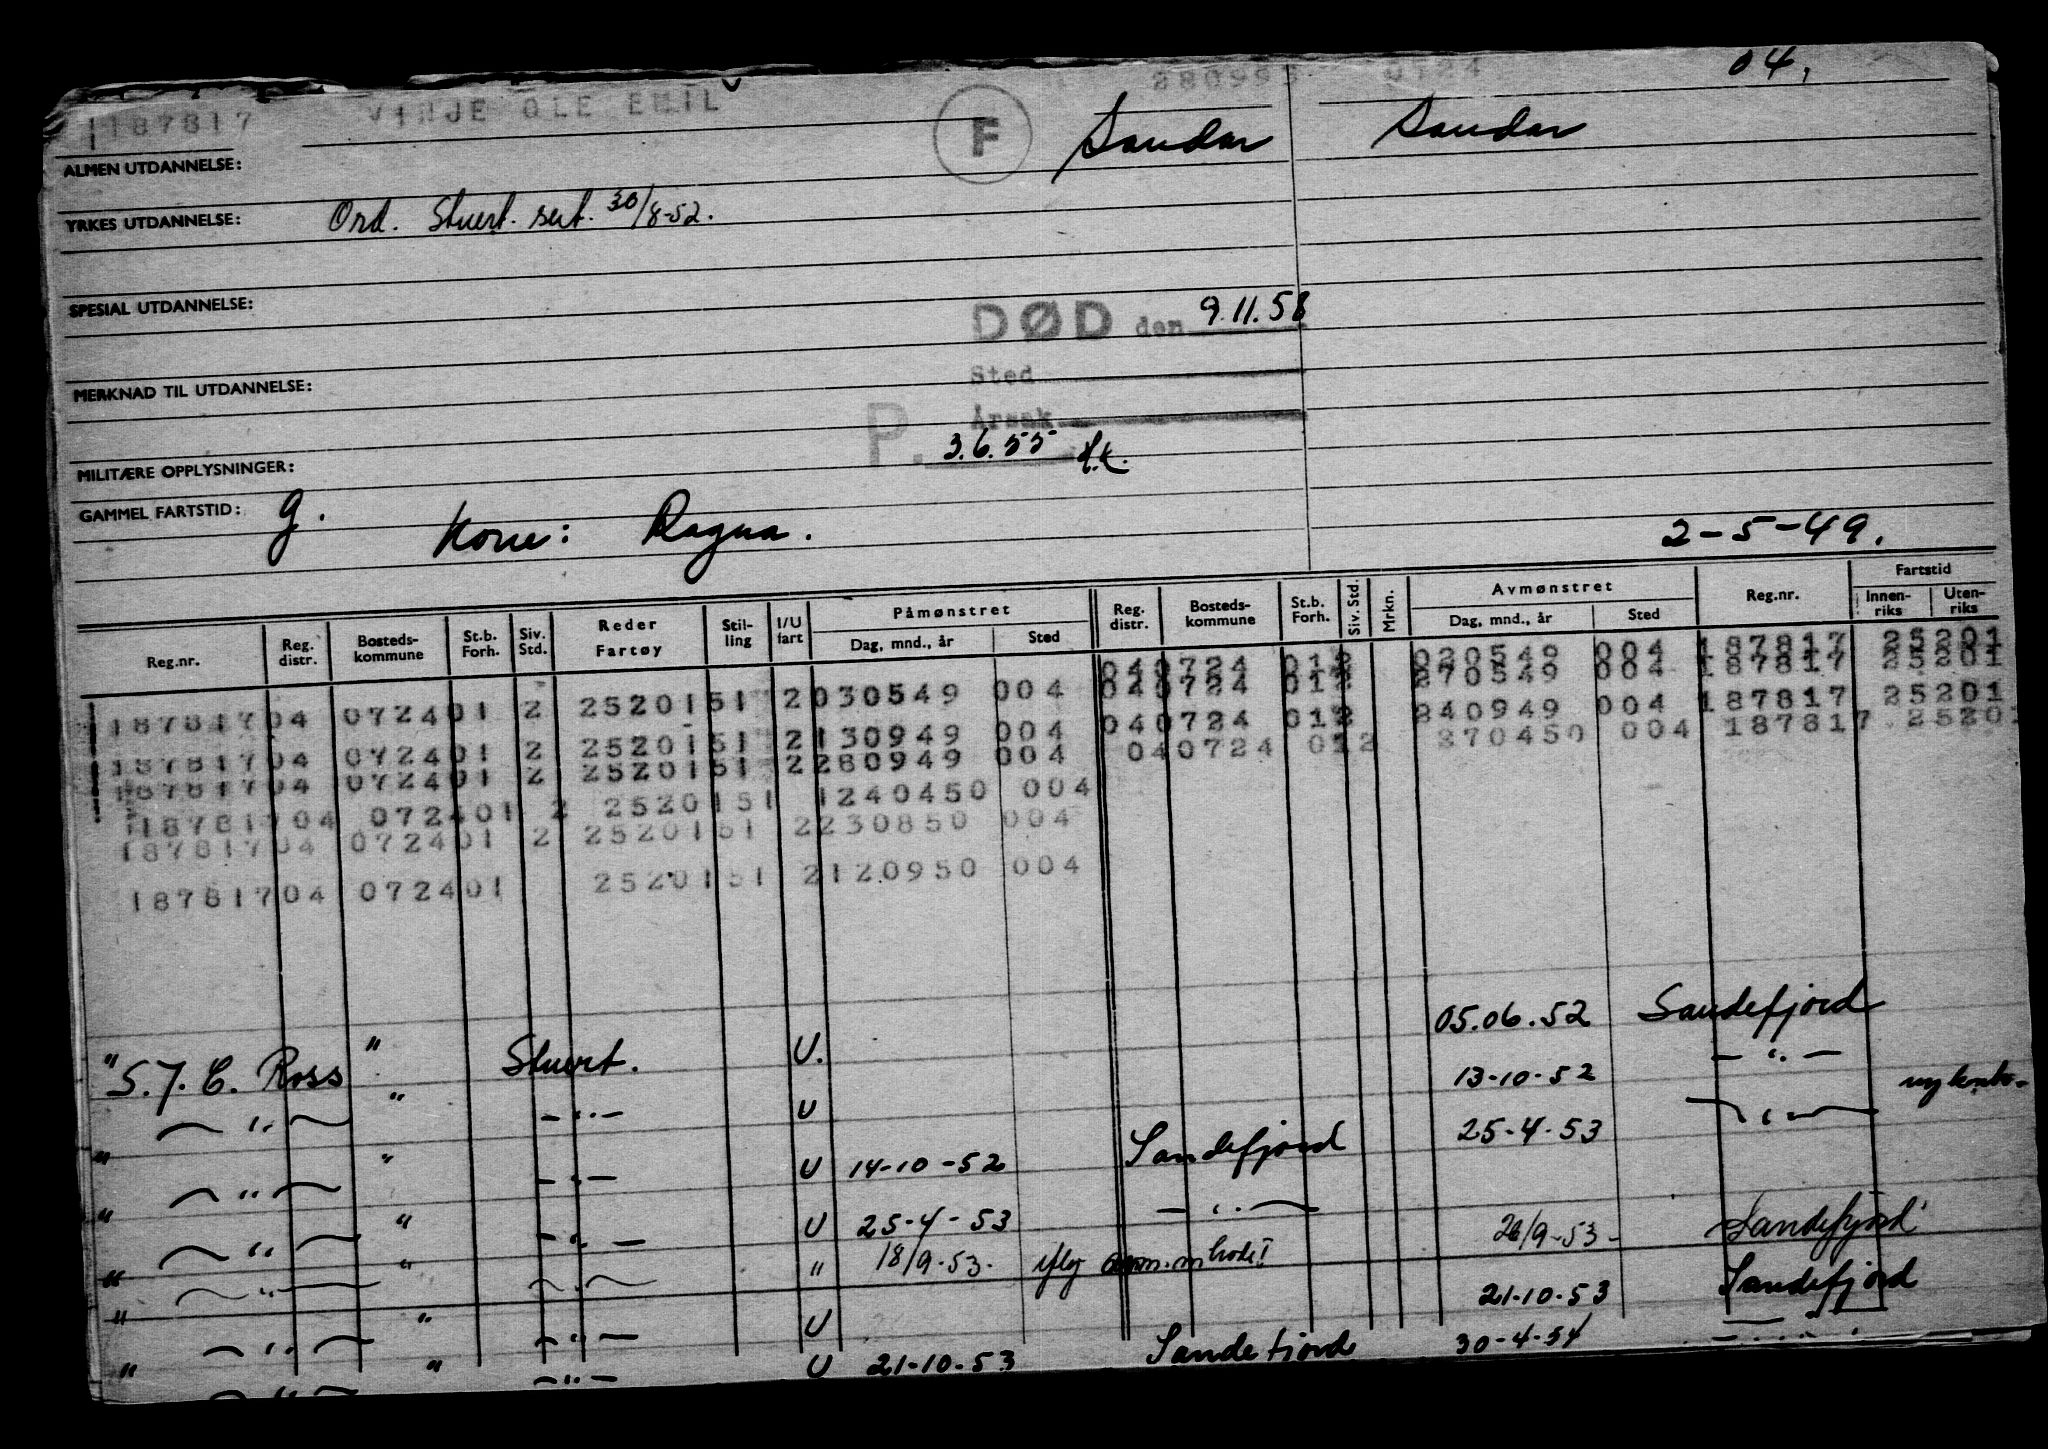 187817 VINJE OLE EMIL 280993 0724 04.
F Sandar Sandar
ALMEN UTDANNELSE:
YRKES UTDANNELSE: Ord. Stuert. sert. 30/8-52.
SPESIAL UTDANNELSE:
DØD den 9.11.58
Sted
MERKNAD TIL UTDANNELSE:
Årsak
P. 3.6.55 H.K.
MILITÆRE OPPLYSNINGER:
GAMMEL FARTSTID: g.
Kone: Ragna. 2-5-49.
Reg.nr. Reg. distr. Bosteds-kommune St.b. Forh. Siv. Std. Reder Fartøy Stil-ling I/U fart Påmønstret Dag, mnd., år Sted Reg. distr. Bosteds-kommune St.b. Forh. Siv. Std. Mrkn. Avmønstret Dag, mnd., år Sted Reg.nr. Fartstid Innen-riks Uten-riks
040724 012 020549 004 187817 25201
18781704 072401 2 2520151 2030549 004 040724 012 270549 004 187817 25201
18781704 072401 2 2520151 2130949 004 040724 012 240949 004 187817 25201
18781704 072401 2 2520151 2280949 004 040724 012 270450 004 187817 25201
18781704 072401 2 2520151 1240450 004
18781704 072401 2 2520151 2230850 004
18781704 072401 2520151 2120950 004
05.06.52 Sandefjord
"S.J. C. Ross " Stuert. U. 13-10-52 — " —
— " — " — " — U 25-4-53 — " —
" — " — " — " — U 14-10-52 Sandefjord
" — " — " — " — U 25-4-53 — " — 26/9-53- Sandefjord
" — " — " — " — " 18/9-53. 21-10-53 Sandefjord
" — " — " — " — U 30-4-54 — " —
" — " — " — " — U 21-10-53 Sandefjord